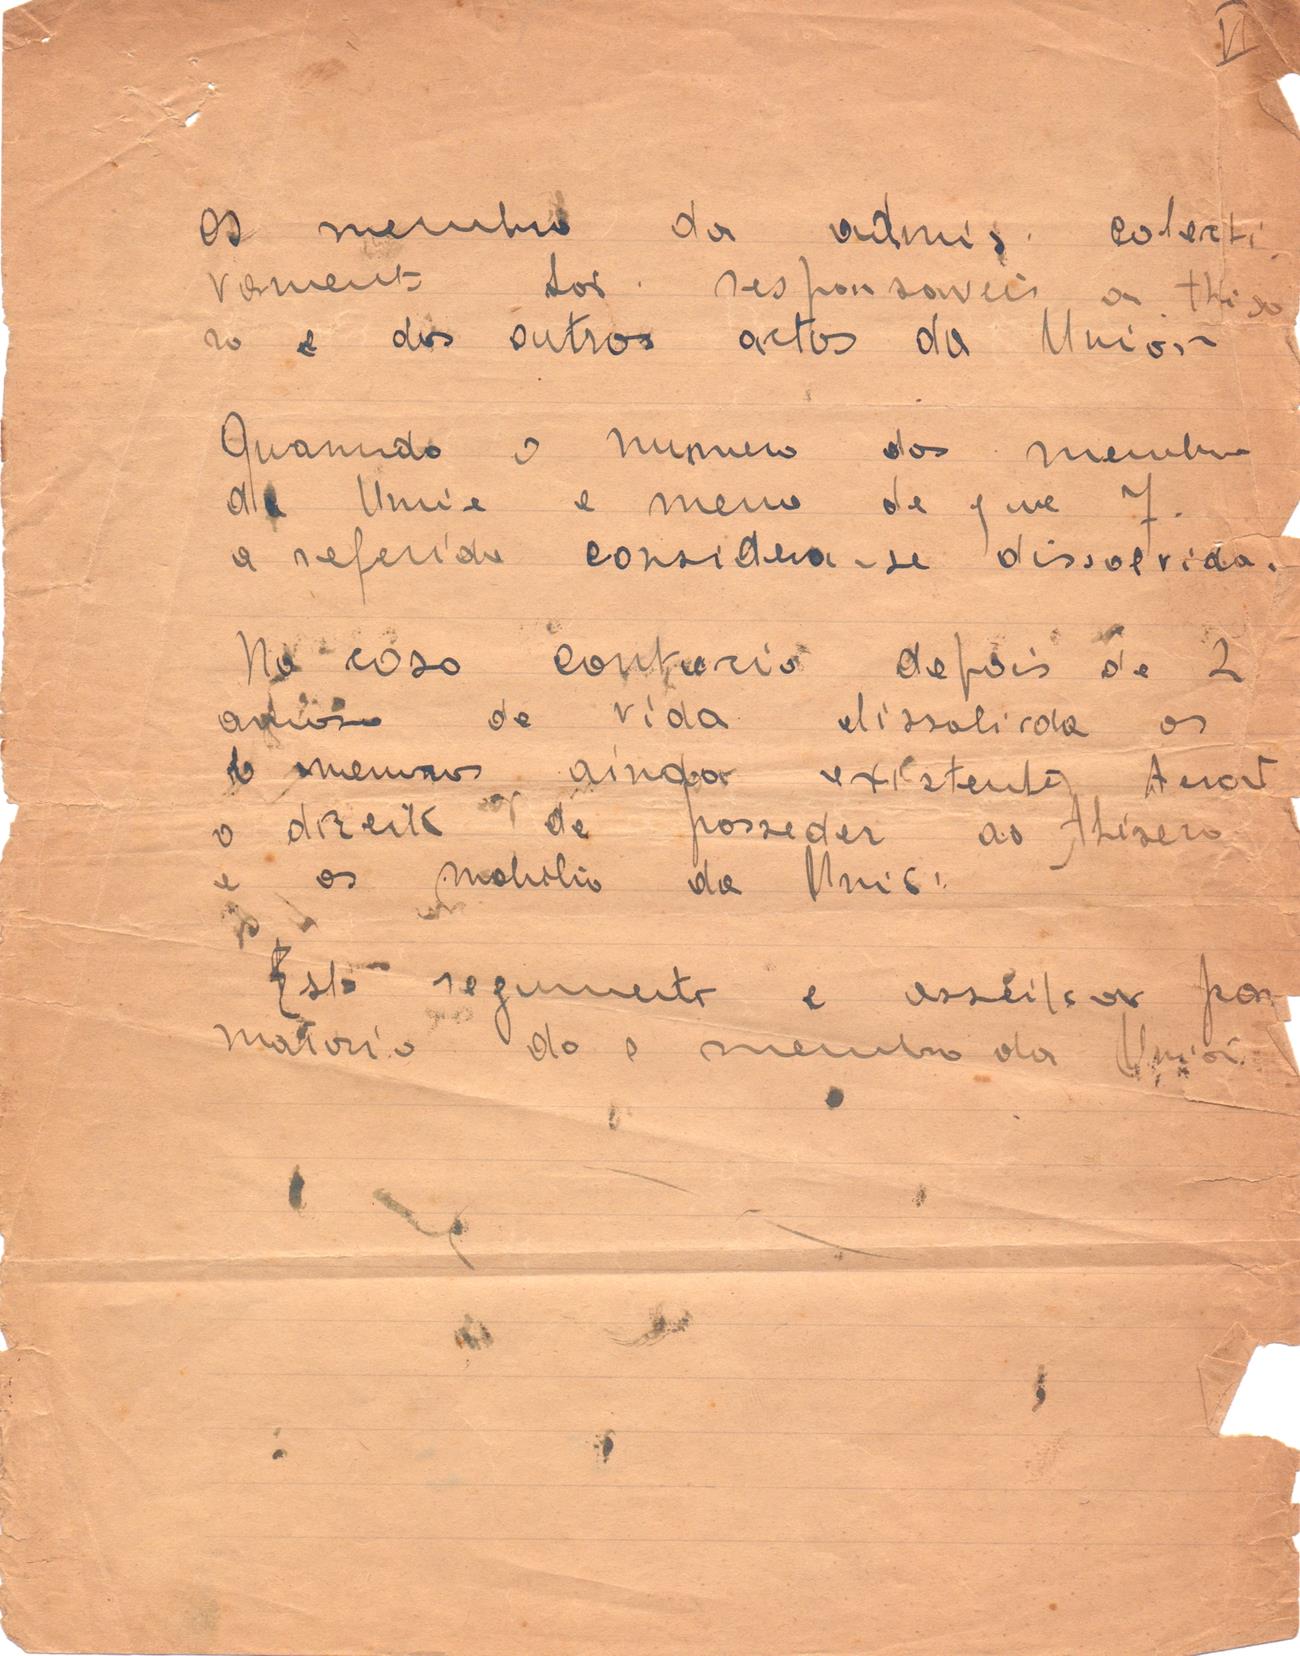 VI
Os membro da admis. colecti
vament sos responsaveis a thiso
ro e dos outros actos da Union
Quanudo o numero dos membro
de Unie e meno de que 7.
a referida considera-se dissolvida.
No caso contrario depois de 2
de vida dissolvida os
ainda existente
o direit de posseder ao thisero
e os mobilio da Unié
Esto regumento e por
do e membro da Unioi